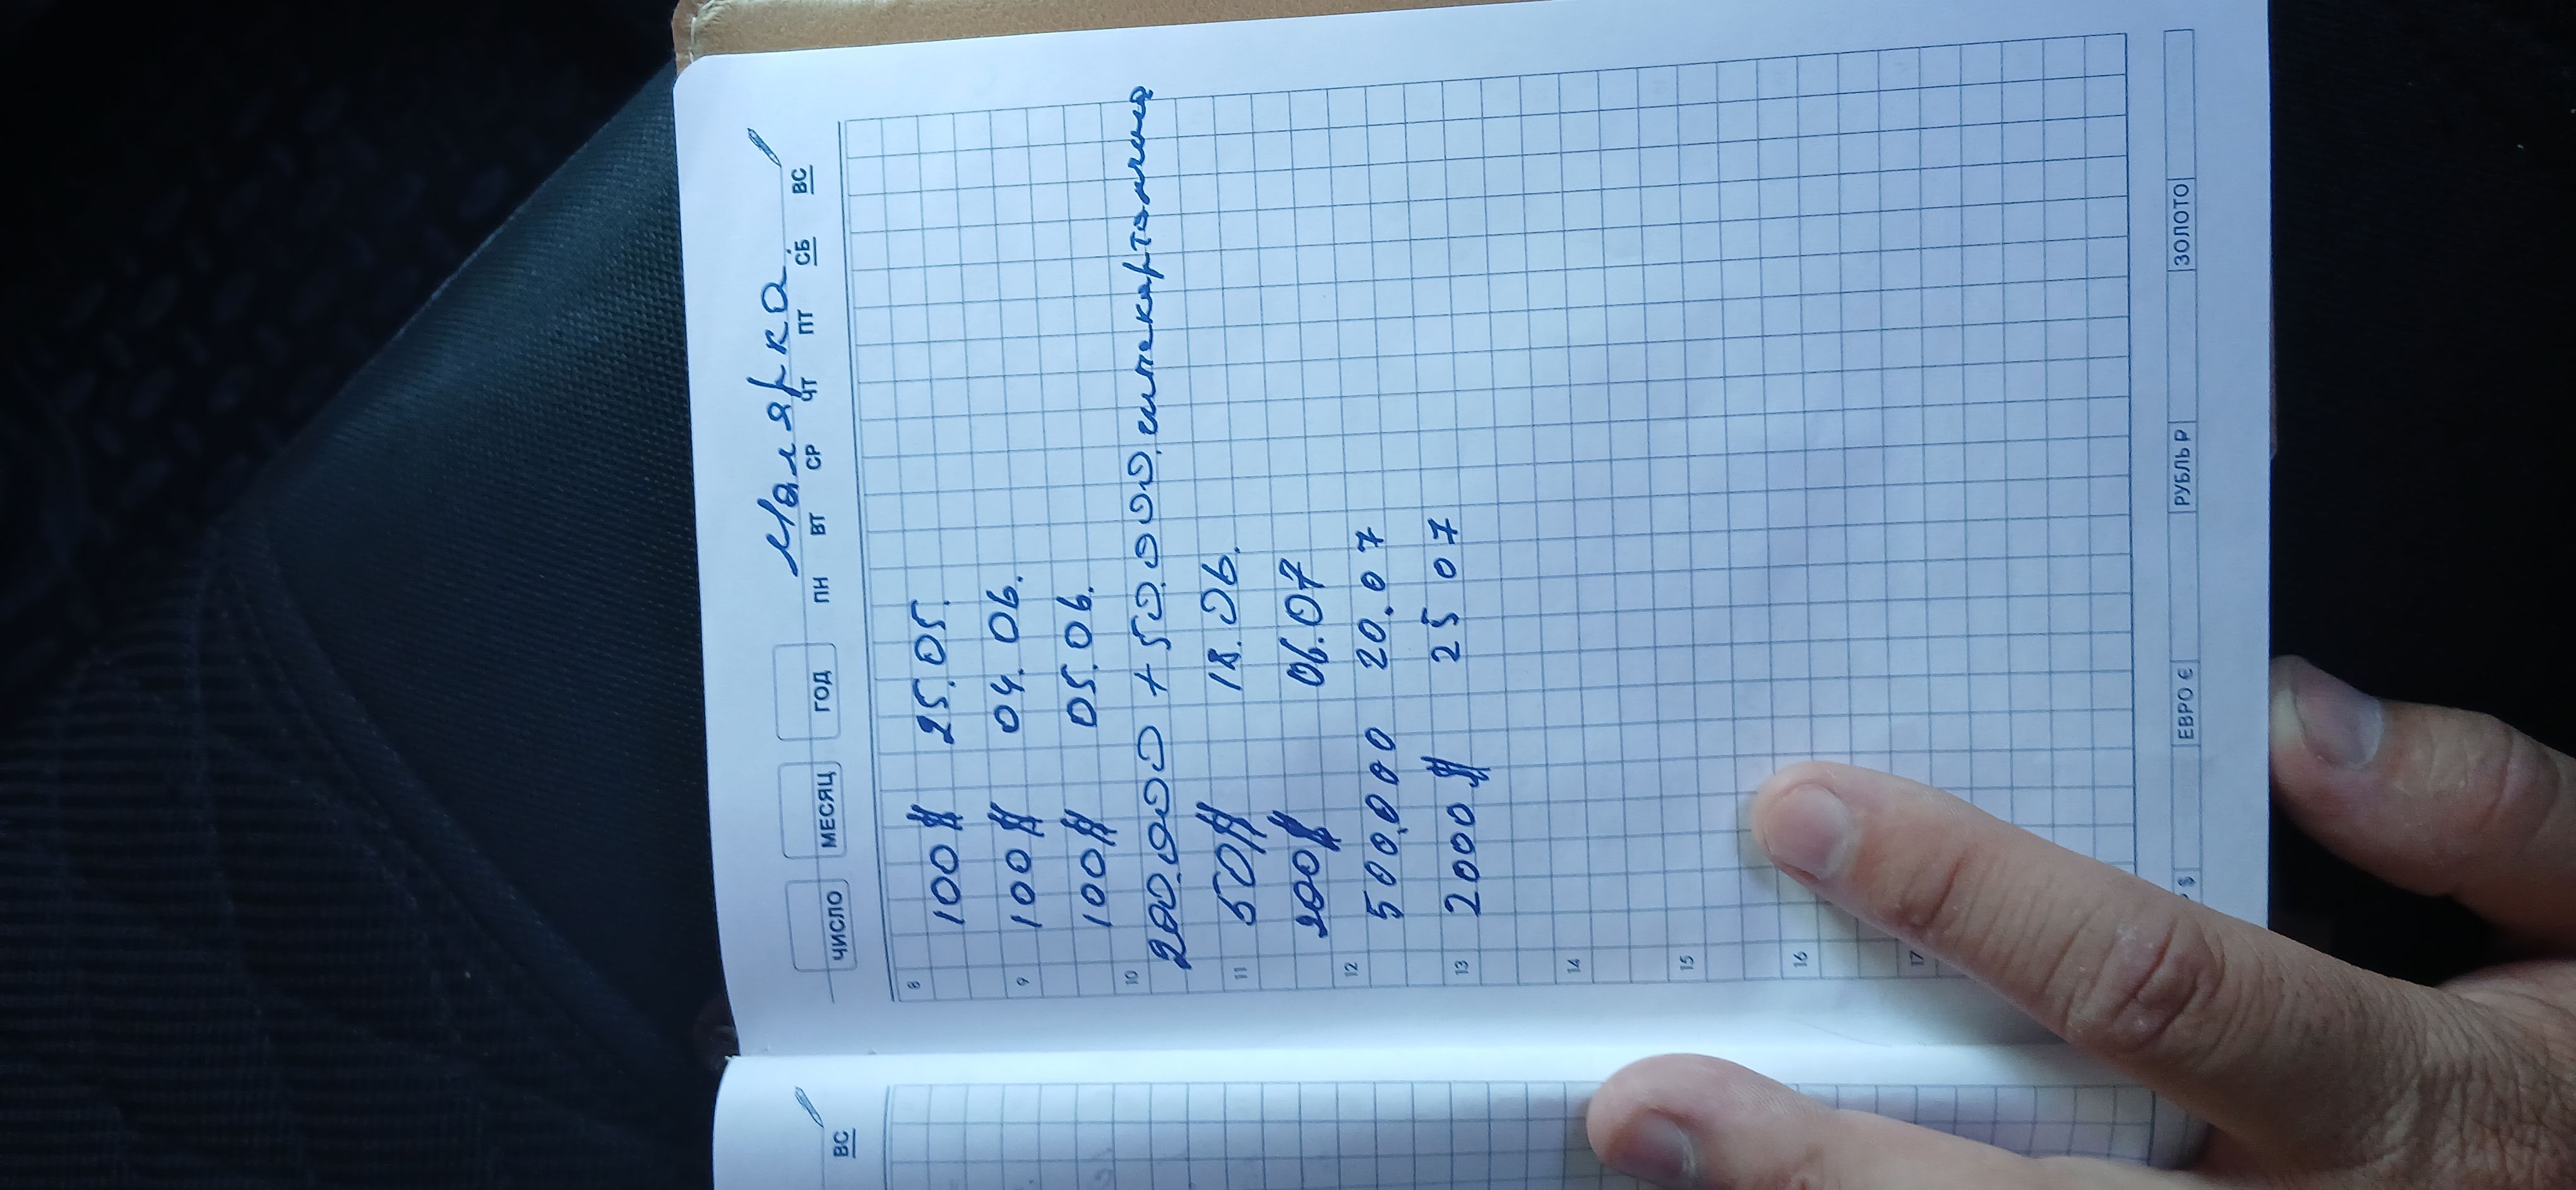 Малярка
ЧИСЛО МЕСЯЦ ГОД ПН ВТ СР ЧТ ПТ СБ ВС
8 100 $ 25.05.
9 100 $ 04.06.
100 $ 05.06.
10 200.000 + 50.000
11 50 $ 18.06.
200 $ 06.07
12 500.000 20.07
13 2000 $ 25 07
14
15
16
17
$ ЕВРО € РУБЛЬ Р ЗОЛОТО
ВС